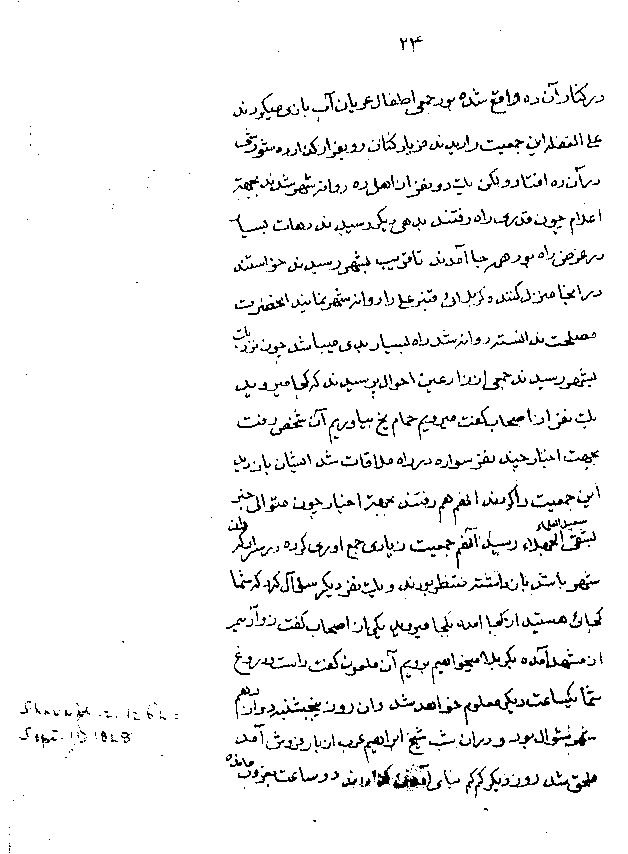 ۲۳
در کنار آن ده واقع شده بود جمعی اطفال عریان آب بازی میکردند
علی الغفله این جمعیت را دیدند فریاد کنان رو بفرار کذارده شور سختی
در آن ده افتاد ولکن یک دو نفر از اهل ده روانه شهر شدند بجهة
اعلام چون قدری راه رفتند بدهی دیکر رسیدند دهات بسیار
در عرض راه بود همه جا آمدند تا قریب بشهر رسیدند خواستند
در انجا منزل کنند و کربلائی قنبر علی را روانه شهر نمایند انحضرت
مصلحت ندانسته روانه شد راه بسیار بدی میباشد چون نزدیک
بشهر رسیدند جمعی از زارعین احوال پرسیدند که کجا میروید
یک نفر از اصحاب کفت میرویم حمام یخ بیاوریم آن شخص رفت
بجهت اخبار چند نفر سواره در راه ملاقات شد ایشان باز دید
این جمعیت را کردند انهم هم رفتند بجهة اخبار چون متوالی خبر
بشقی العلماء سعید العلماء رسید آنهم جمعیت زیادی جمع اوری کرده در سر
شهر باستاد بان داشته منتظر بودند و یک نفر دیکر سئوال کرد که شما
کجائی هستید از کجا امده بکجا میروید یکی از اصحاب کفت زوار
از مشهد آمده بکربلا میخواهیم برویم آن ملعون کفت راست و دروغ
شما یکساعت دیکر معلوم خواهد شد و ان روز پنجشنبه دوازدهم
شهر شوال بود و در ان شب شیخ ابراهیم عرب از بارفروش آمده
ملحق شد روز دیکر کم کم بنای دو ساعت بغروب مانده
Shavval 12, 1264 =
Sept. 1848